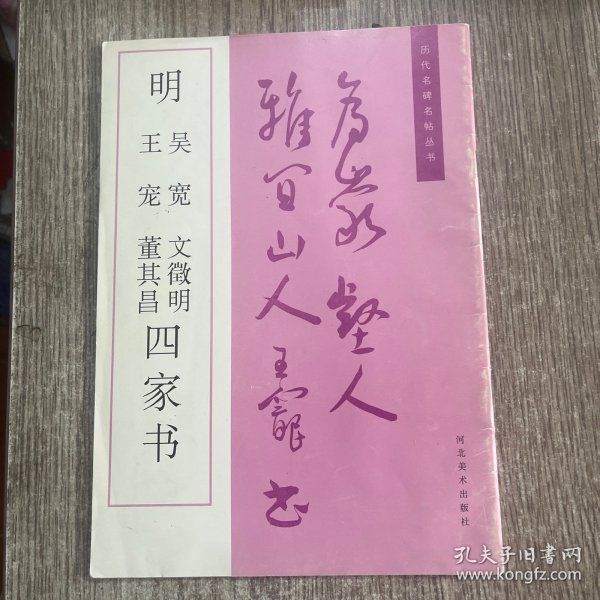 历代名碑名帖丛书
明
吴宽 文徵明
王宠 董其昌
四家书
雅宜山人王宠书
河北美术出版社
孔夫子旧书网
www.kongfz.com